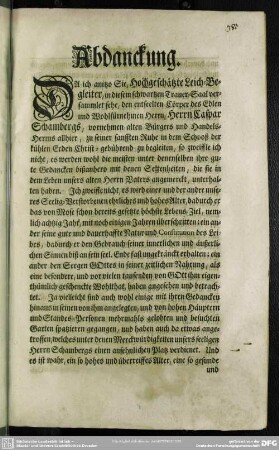 Abdanckung.
DA ich anitzo Sie, Hochgeschätzte Leich-Be-
gleiter, in diesem schwartzen Trauer-Saal ver-
sammlet sehe, den entseelten Cörper des Edlen
und Wohlfürnehmen Herrn, Herrn Caspar
Schambergs, vornehmen alten Bürgers und Handels-
Herrns allhier, zu seiner sanfften Ruhe in dem Schooß der
kühlen Erden Christ- gebührend zu begleiten, so zweiffle ich
nicht, es werden wohl die meisten unter denenselben ihre gu-
te Gedancken bißanhero mit denen Gestalten, die sie in
dem Leben unsers alten Herrn Vaters angemerckt, unterhal-
ten haben. Ich zweiffle nicht, es wird einer und der ander unse-
res Seelig-Verstorbenen ehrliches und hohes Alter, dadurch er
das von Mose schon bereits gesetzte höchste Lebens-Ziel, nem-
lich achtzig Jahr, mit noch einigen Jahren überschritten; ein ander
seine gute und dauerhaffte Natur und Constitution des Lei-
bes, dadurch er den Gebrauch seiner innerlichen und äuserli-
chen Sinnen biß an sein Ende fast ungekränckt erhalten; ein
ander den Seegen GOttes in seiner zeitlichen Nahrung, als
eine besondere, und vor vielen tausenden von GOtt ihm eigen-
thümlich geschenckte Wohlthat, haben angesehen und betrach-
tet. Ja vielleicht sind auch wohl einige mit ihren Gedancken
hinaus in seinen von ihm angelegten, und von hohen Häuptern
und Standes-Personen mehrmahls gelobten und besuchten
Garten spatzieren gegangen, und haben auch da etwas ange-
troffen, welches unter denen Merckwürdigkeiten unsers seeligen
Herrn Schambergs einen ansehnlichen Platz verdienet. Und
es ist wahr, ein so hohes und übertreffes Alter, eine so gesunde
und